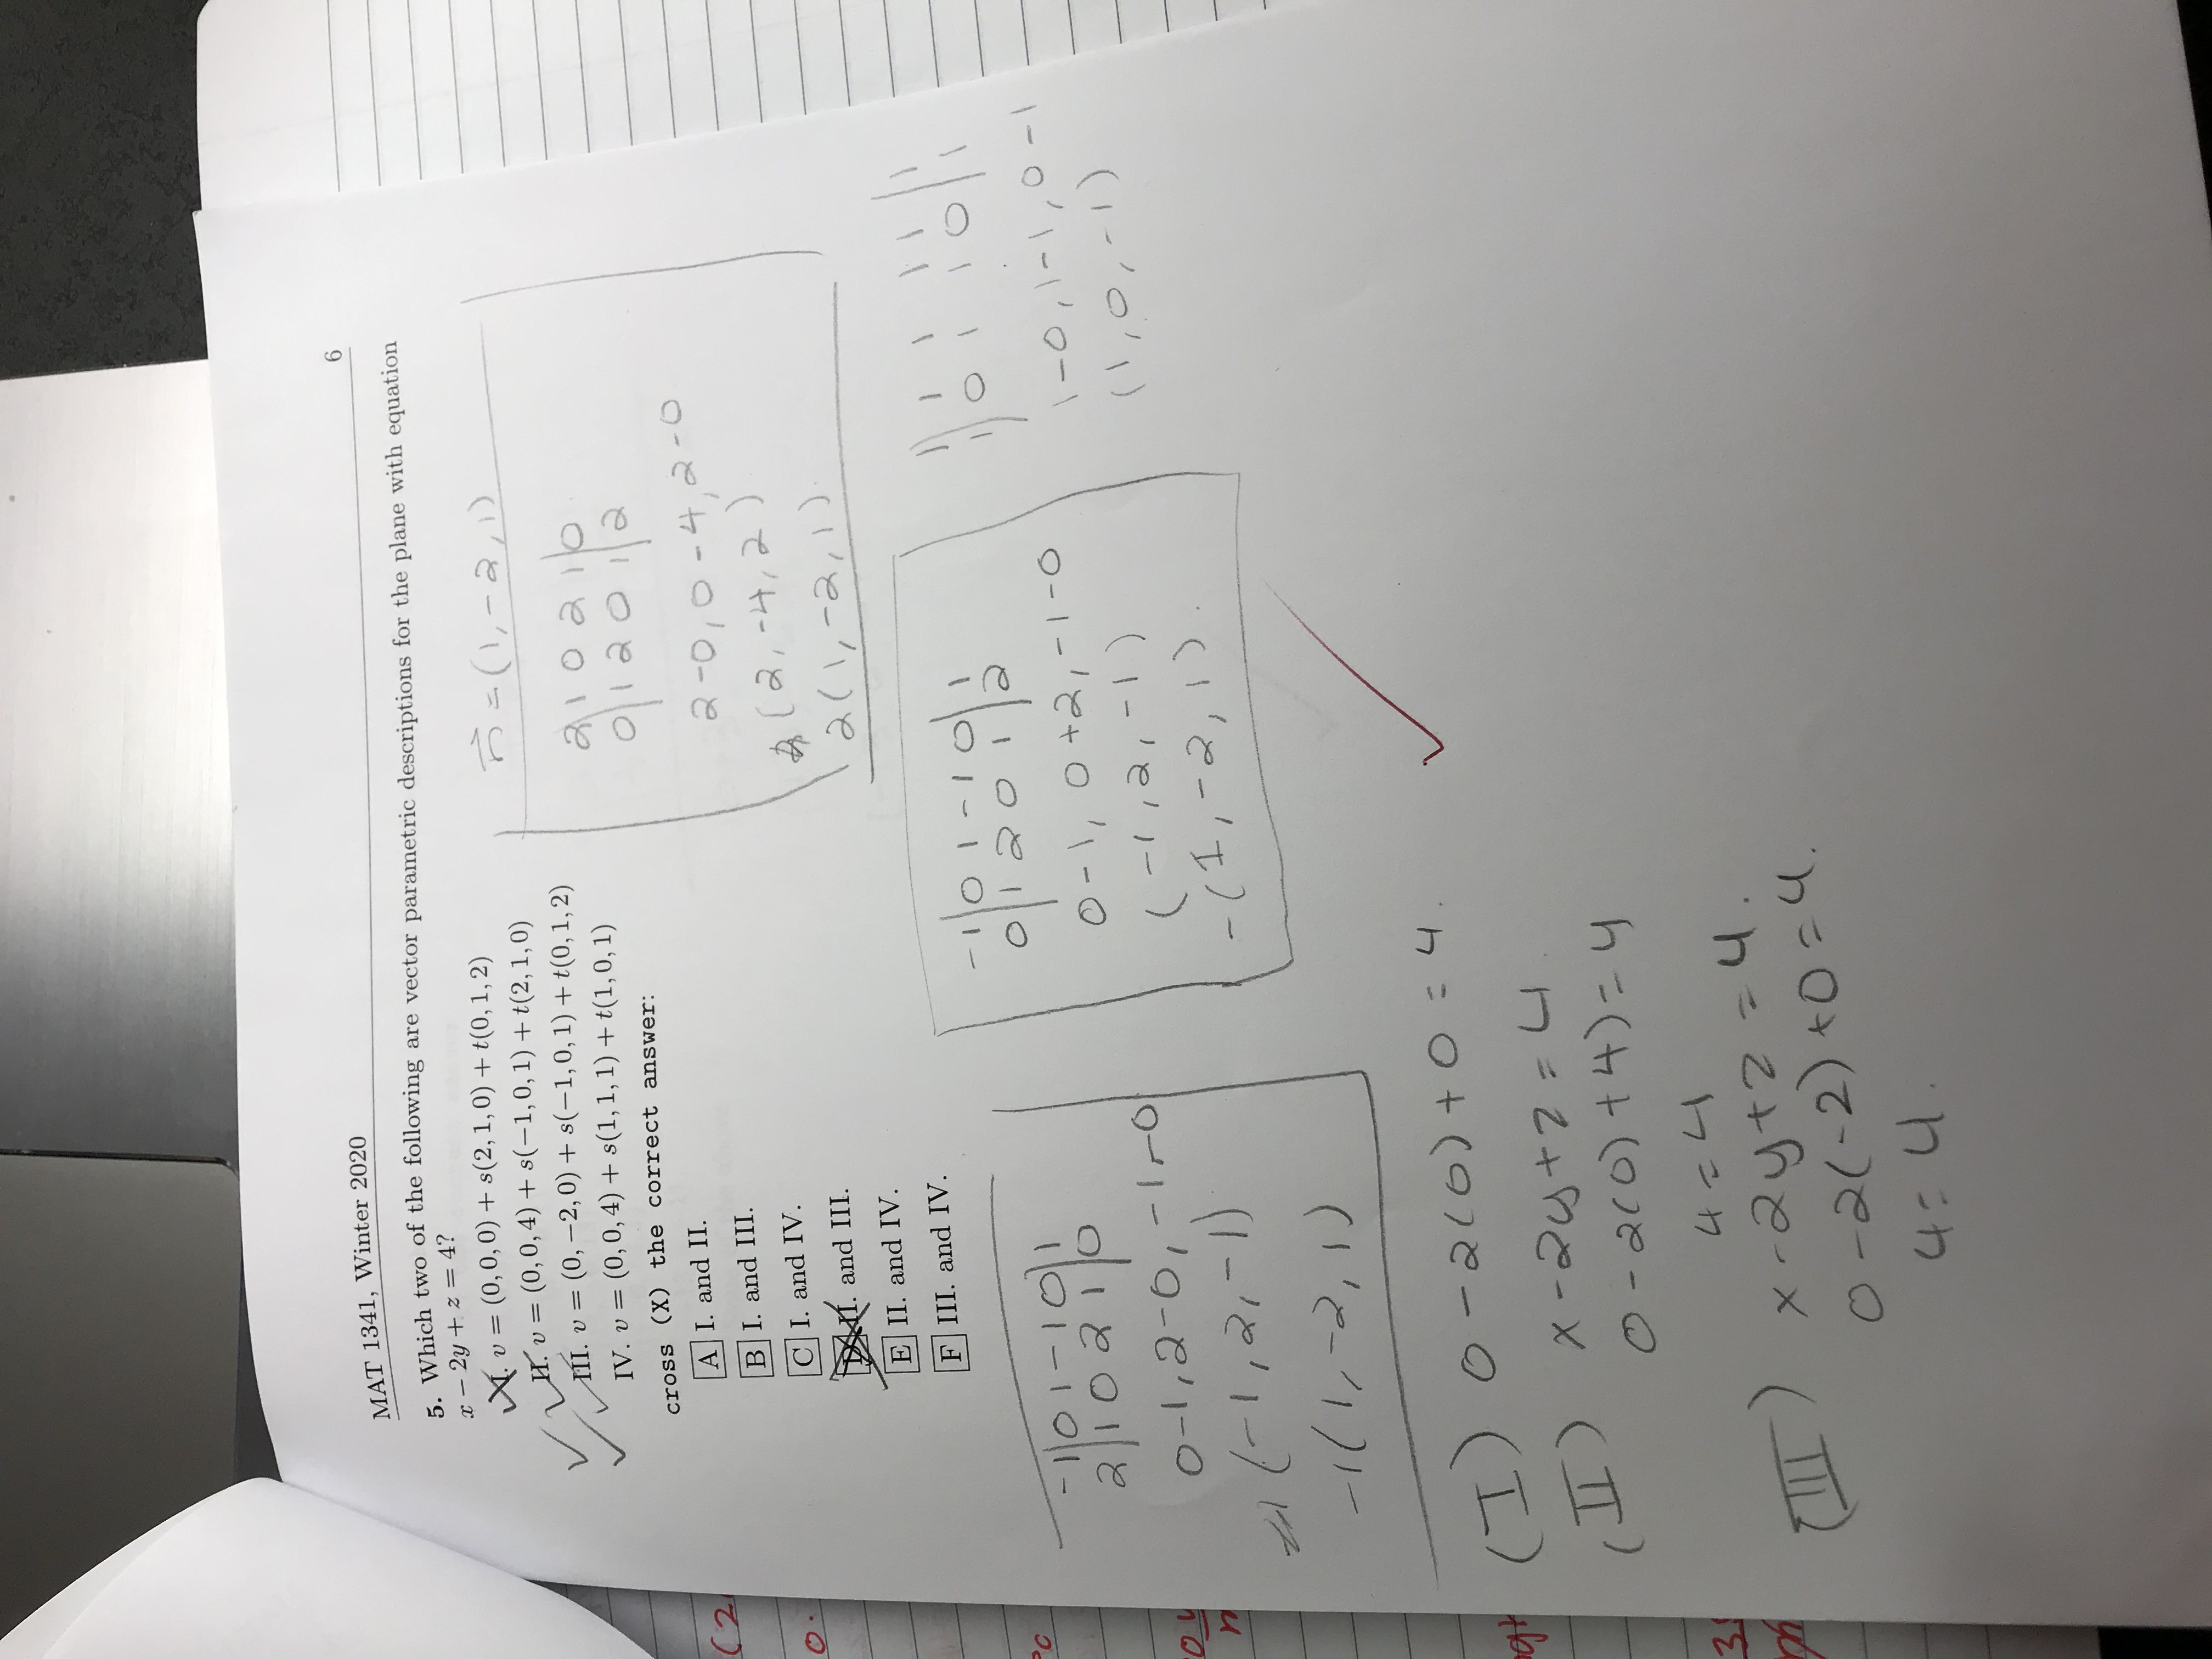 MAT 1341, Winter 2020 6
5. Which two of the following are vector parametric descriptions for the plane with equation
x − 2y + z = 4?
I. v = (0, 0, 0) + s(2, 1, 0) + t(0, 1, 2)
II. v = (0, 0, 4) + s(−1, 0, 1) + t(2, 1, 0)
III. v = (0, −2, 0) + s(−1, 0, 1) + t(0, 1, 2)
IV. v = (0, 0, 4) + s(1, 1, 1) + t(1, 0, 1)
cross (X) the correct answer:
A I. and II.
B I. and III.
C I. and IV.
D II. and III.
E II. and IV.
F III. and IV.
n = (1, -2, 1)
2 | 1 0 2 1 | 0
0 | 1 2 0 1 | 2
2-0, 0-4, 2-0
(2, -4, 2)
2(1, -2, 1)
-1 | 0 1 -1 0 | 1
2 | 1 0 2 1 | 0
0-1, 2-0, -1-0
(-1, 2, -1)
-1(1, -2, 1)
-1 | 0 1 -1 0 | 1
0 | 1 2 0 1 | 2
0-1, 0+2, -1-0
(-1, 2, -1)
-(1, -2, 1).
1 | 1 1 1 1 | 1
1 | 0 1 1 0 | 1
1-0, 1-1, 0-1
(1, 0, -1)
(I) 0-2(0)+0=4.
(II) x-2y+z=4
0-2(0)+4)=4
4=4
(III) x-2y+z=4.
0-2(-2)+0=4.
4=4.
(2
0.